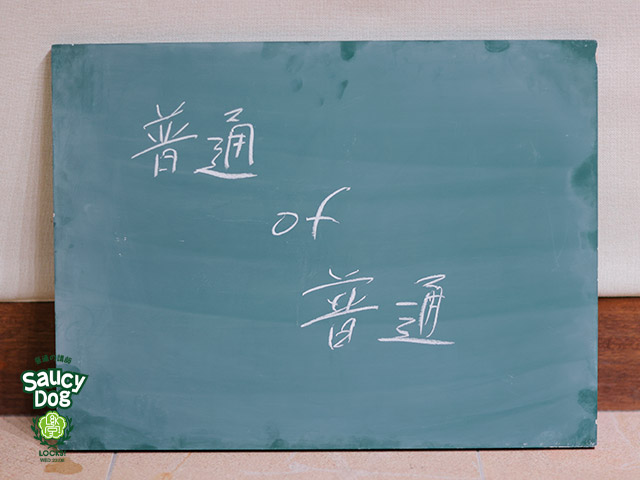 普通
of
普通
普通の講師
SAUCY
DOG
LOCKS!